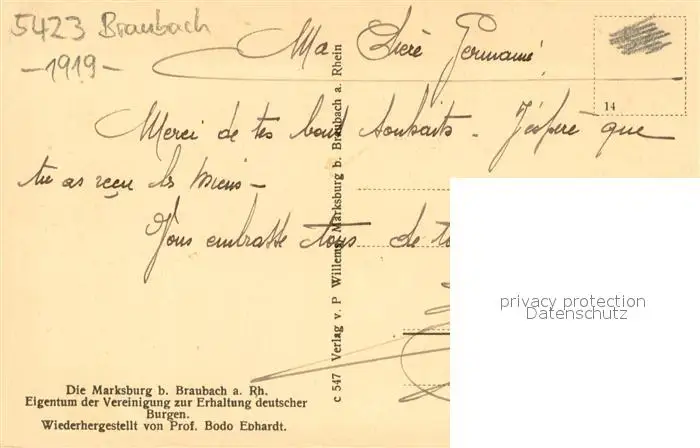 5423 Braubach
-1919-
Ma Chère Germaine,
14
Merci de tes bons souhaits - J'espère que
tu as reçu les miens -
Vous embrasse tous de
c 547 Verlag v. P Willems, Marksburg b. Braubach a. Rhein
privacy protection
Datenschutz
Die Marksburg b. Braubach a. Rh.
Eigentum der Vereinigung zur Erhaltung deutscher
Burgen.
Wiederhergestellt von Prof. Bodo Ebhardt.